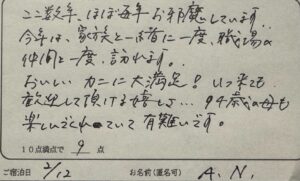 ここ数年、ほぼ毎年お邪魔しています。
今年は、家族と一緒に一度、職場の
仲間と一度、訪れます。
おいしいカニに大満足！いつ来ても
歓迎して頂ける嬉しさ…94歳の母も
楽しみにしていて有難いです。
10点満点で 9 点
ご宿泊日 2/12 お名前(匿名可) A.N.